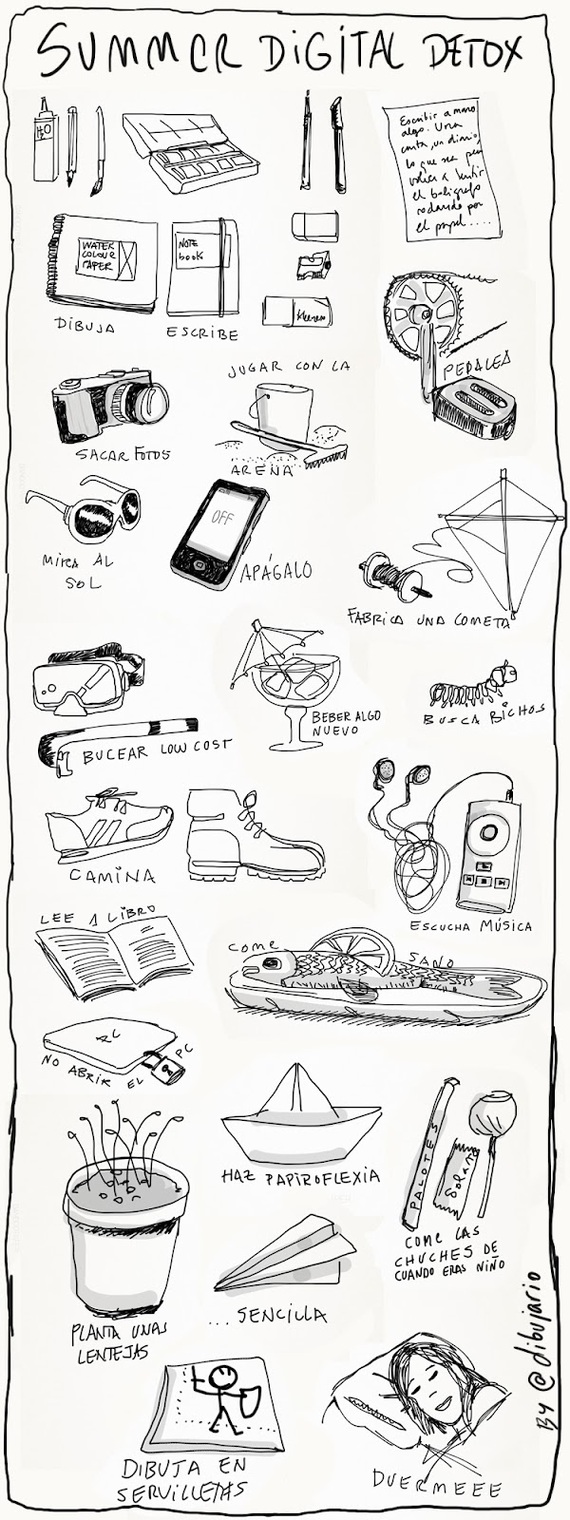 SUMMER DiGiTAL DETOX
H2O
Escribir a mano
algo. Una
carta, un diario,
lo que sea para
volver a sentir
el bolígrafo
rodando por
el papel....
WATER
COLOUR
PAPER
NOTE
book
DIBUJA
ESCRIBE
PEDALEA
JUGAR CON LA
ARENA
SACAR FOTOS
OFF
MiRA AL
SOL
APÁGALO
FABRICA UNA COMETA
BEBER ALGO
NUEVO
BUSCA BICHOS
BUCEAR LOW COST
CAMiNA
ESCUCHA MÚSICA
LEE 1 LIBRO
COME SANO
NO ABRIR EL PC
HAZ PAPIROFLEXIA
PALOTES
COME LAS
CHUCHES DE
CUANDO ERAS NIÑO
... SENCILLA
PLANTA UNAS
LENTEJAS
BY @dibujario
DIBUJA EN
SERVILLETAS
DUERMEEE